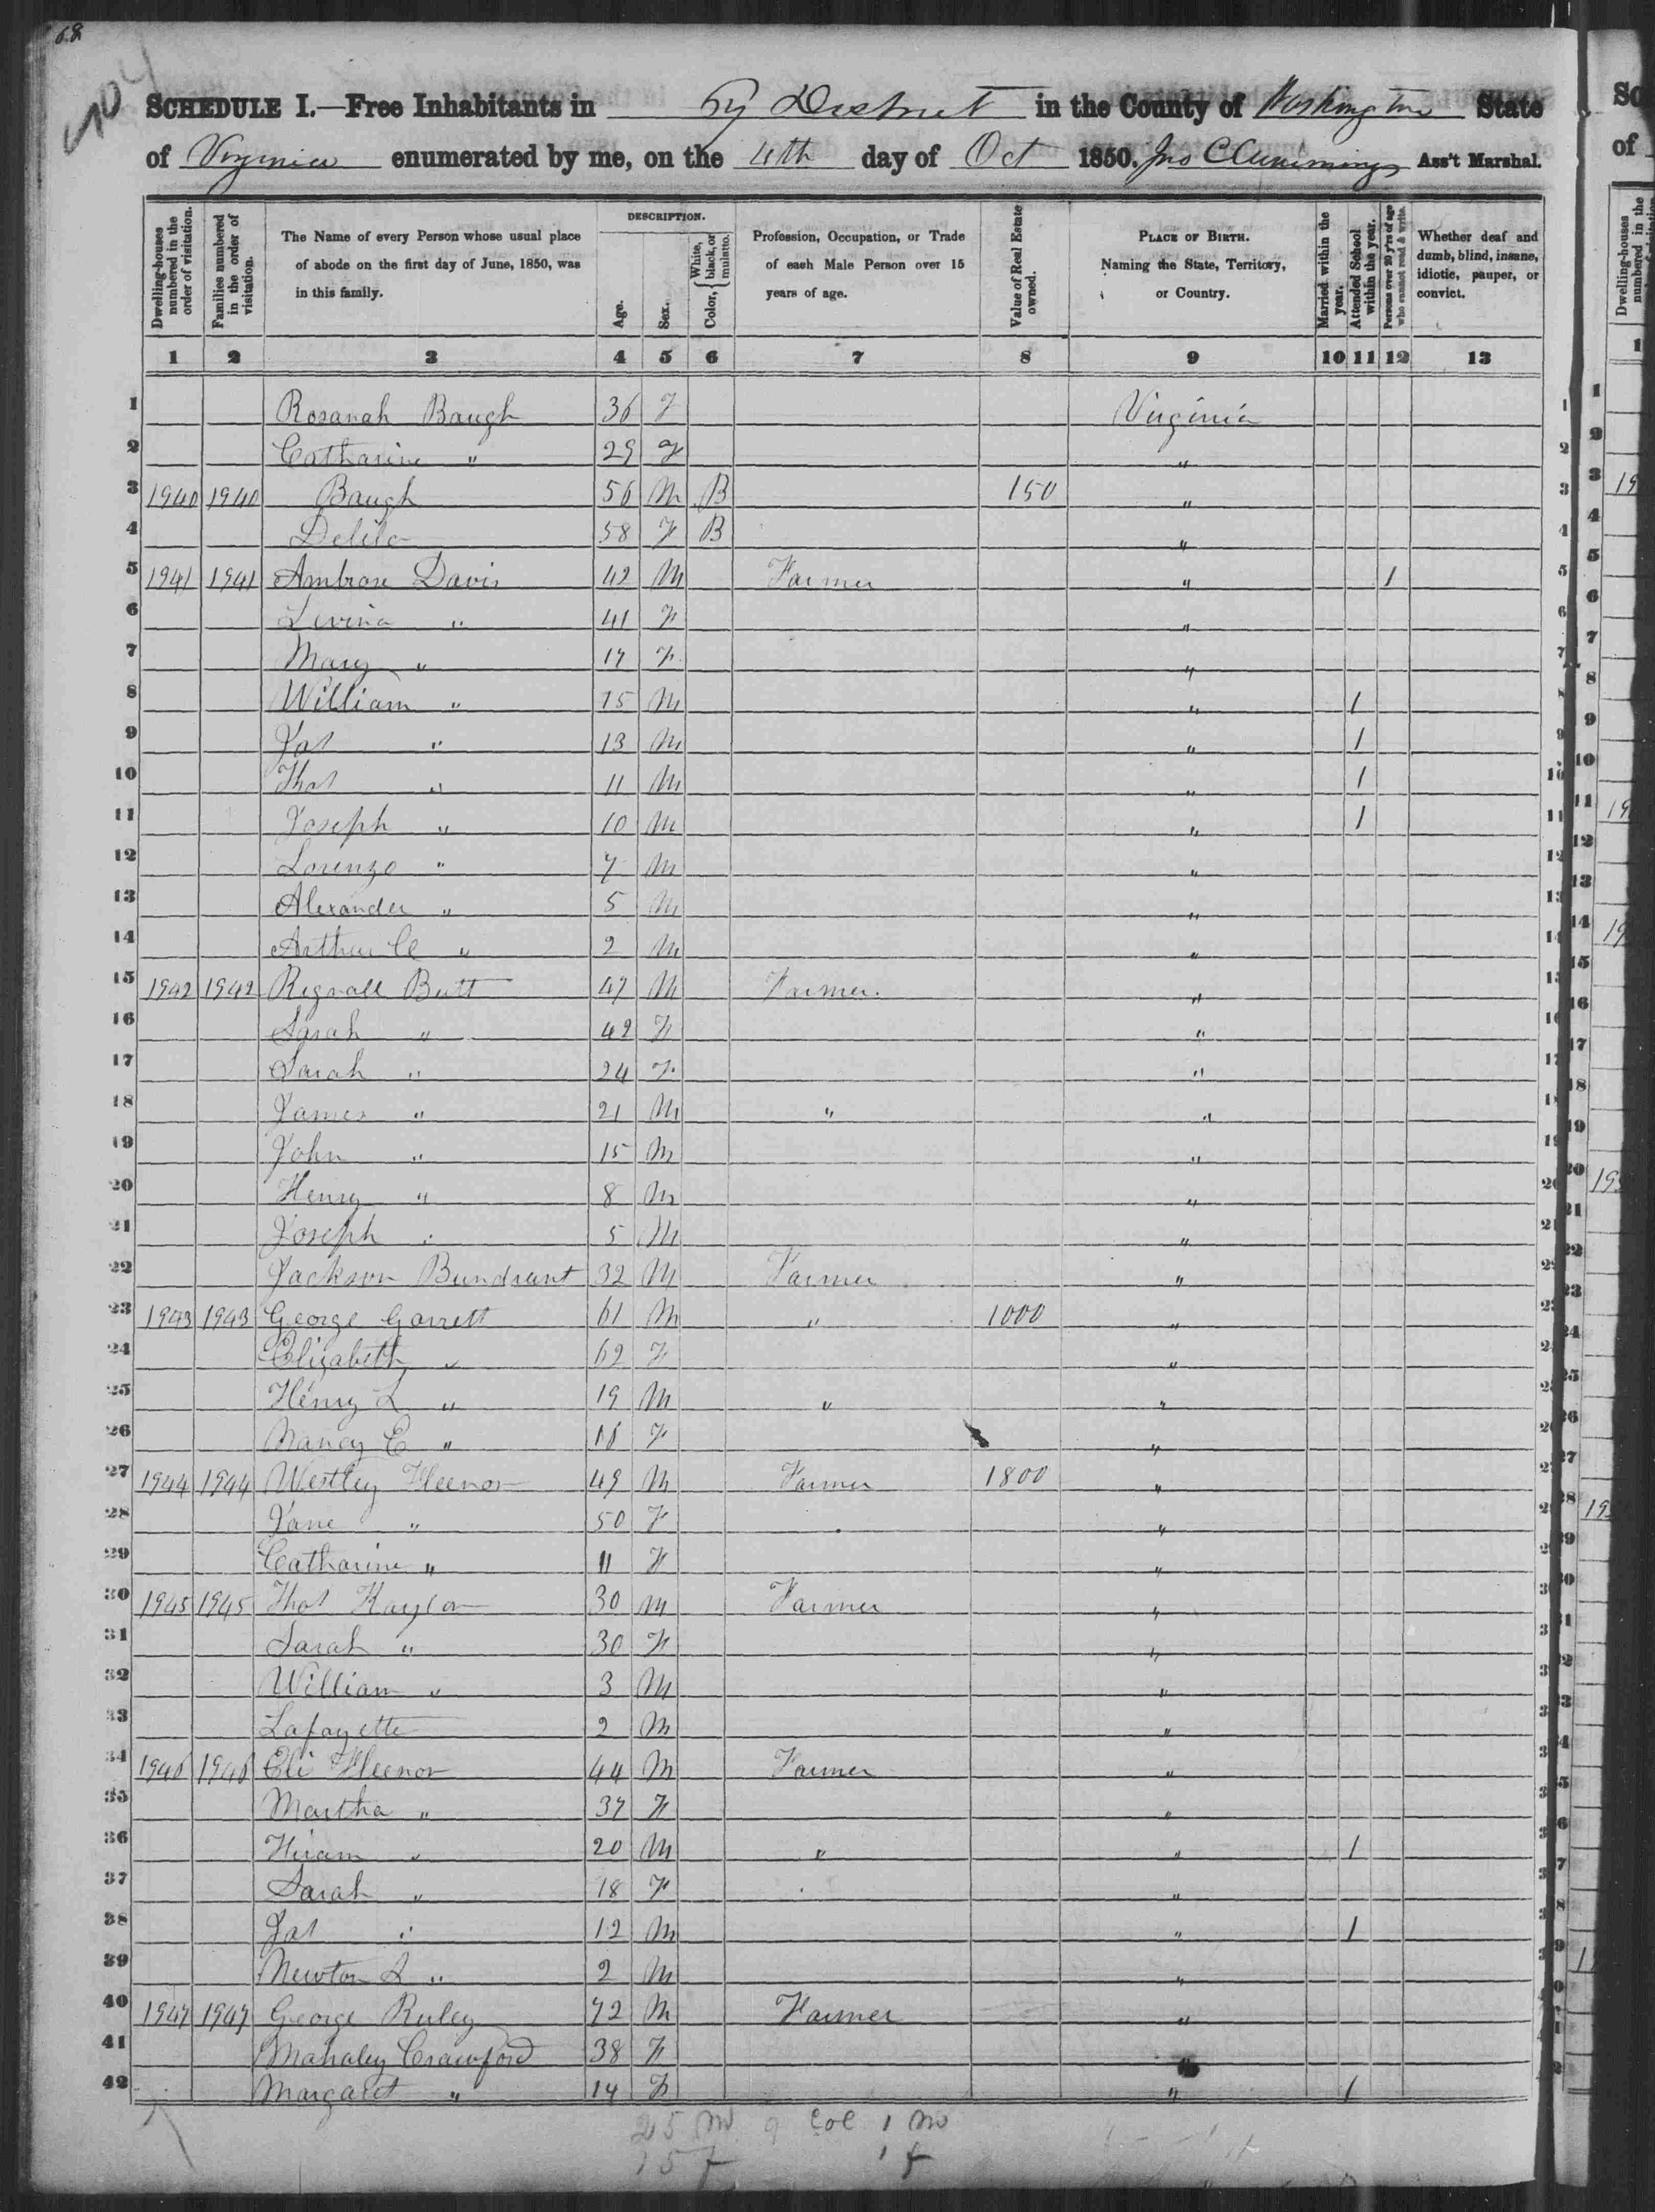 68
904
SCHEDULE I.—Free Inhabitants in 67 District in the County of Washington State
of Virginia enumerated by me, on the 4th day of Oct 1850. Jno C Cummings Ass't Marshal.
Dwelling-houses numbered in the order of visitation.
Families numbered in the order of visitation.
The Name of every Person whose usual place of abode on the first day of June, 1850, was in this family.
DESCRIPTION.
Age.
Sex.
Color, { White, black, or mulatto.
Profession, Occupation, or Trade of each Male Person over 15 years of age.
Value of Real Estate owned.
PLACE OF BIRTH. Naming the State, Territory, or Country.
Married within the year.
Attended School within the year.
Persons over 20 y'rs of age who cannot read & write.
Whether deaf and dumb, blind, insane, idiotic, pauper, or convict.
1 2 3 4 5 6 7 8 9 10 11 12 13
1 Rosanah Baugh 36 F Virginia 1
2 Catharine " 29 F " 2
3 1940 1940 Baugh 56 M B 150 " 3
4 Delila 58 F B " 4
5 1941 1941 Ambrose Davis 42 M Farmer " 1 5
6 Levina " 41 F " 6
7 Mary " 17 F " 7
8 William " 15 M " 1 8
9 Jas " 13 M " 1 9
10 Thos " 11 M " 1 10
11 Joseph " 10 M " 1 11
12 Lorenzo " 7 M " 12
13 Alexander " 5 M " 13
14 Arthur C " 2 M " 14
15 1942 1942 Regnall Butt 47 M Farmer. " 15
16 Sarah " 42 F " 16
17 Sarah " 24 F " 17
18 James " 21 M " "
19 John " 15 M "
20 Henry " 8 M "
21 Joseph " 5 M "
22 Jackson Bundrant 32 M Farmer "
23 1943 1943 George Garrett 61 M " 1000 "
24 Elizabeth " 62 F "
25 Henry L " 19 M " "
26 Nancy E " 16 F "
27 1944 1944 Westley Fleenor 49 M Farmer 1800 "
28 Jane " 50 F "
29 Catharine " 11 F "
30 1945 1945 Thos Kaylor 30 M Farmer "
31 Sarah " 30 F "
32 William " 3 M "
33 Lafayette 2 M "
34 1946 1946 Eli Fleenor 44 M Farmer "
35 Martha " 37 F "
36 Hiram " 20 M " " 1
37 Sarah " 18 F "
38 Jas " 12 M " 1
39 Newton L " 2 M "
40 1947 1947 George Ruley 72 M Farmer "
41 Mahaley Crawford 38 F "
42 Margaret " 14 F " 1
25 M 9 Col 1 M
15 F 1 F